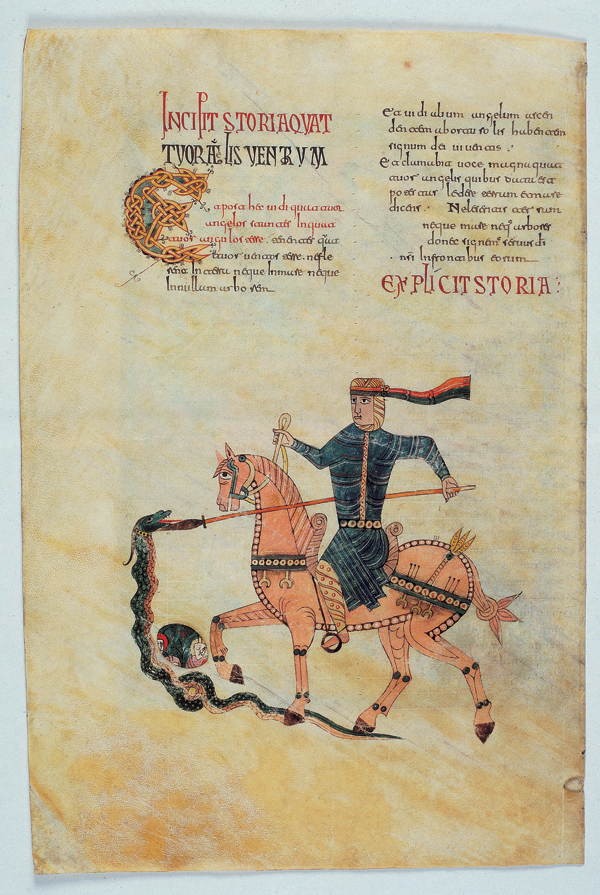 INCIPIT STORIA QUAT
TVOR ÆLIS VENTRVM
Et post hec uidi quattuor
angelos stantes in quat
tuor angulos terre. tenentes quat
tuor uentos terre. ne fle
rent in terra neque in mare neque
in ullam arborem
Et uidi alium angelum ascen
dentem ab ortu solis habentem
signum dei uiuentis.
Et clamabit uoce magna quat
tuor angelis quibus data est
potestas ledere terram et mare
dicens. Ne leseritis terram
neque mare neq arbores
donec signem seruis di
nsi in frontibus eorum
EXPLICIT STORIA: